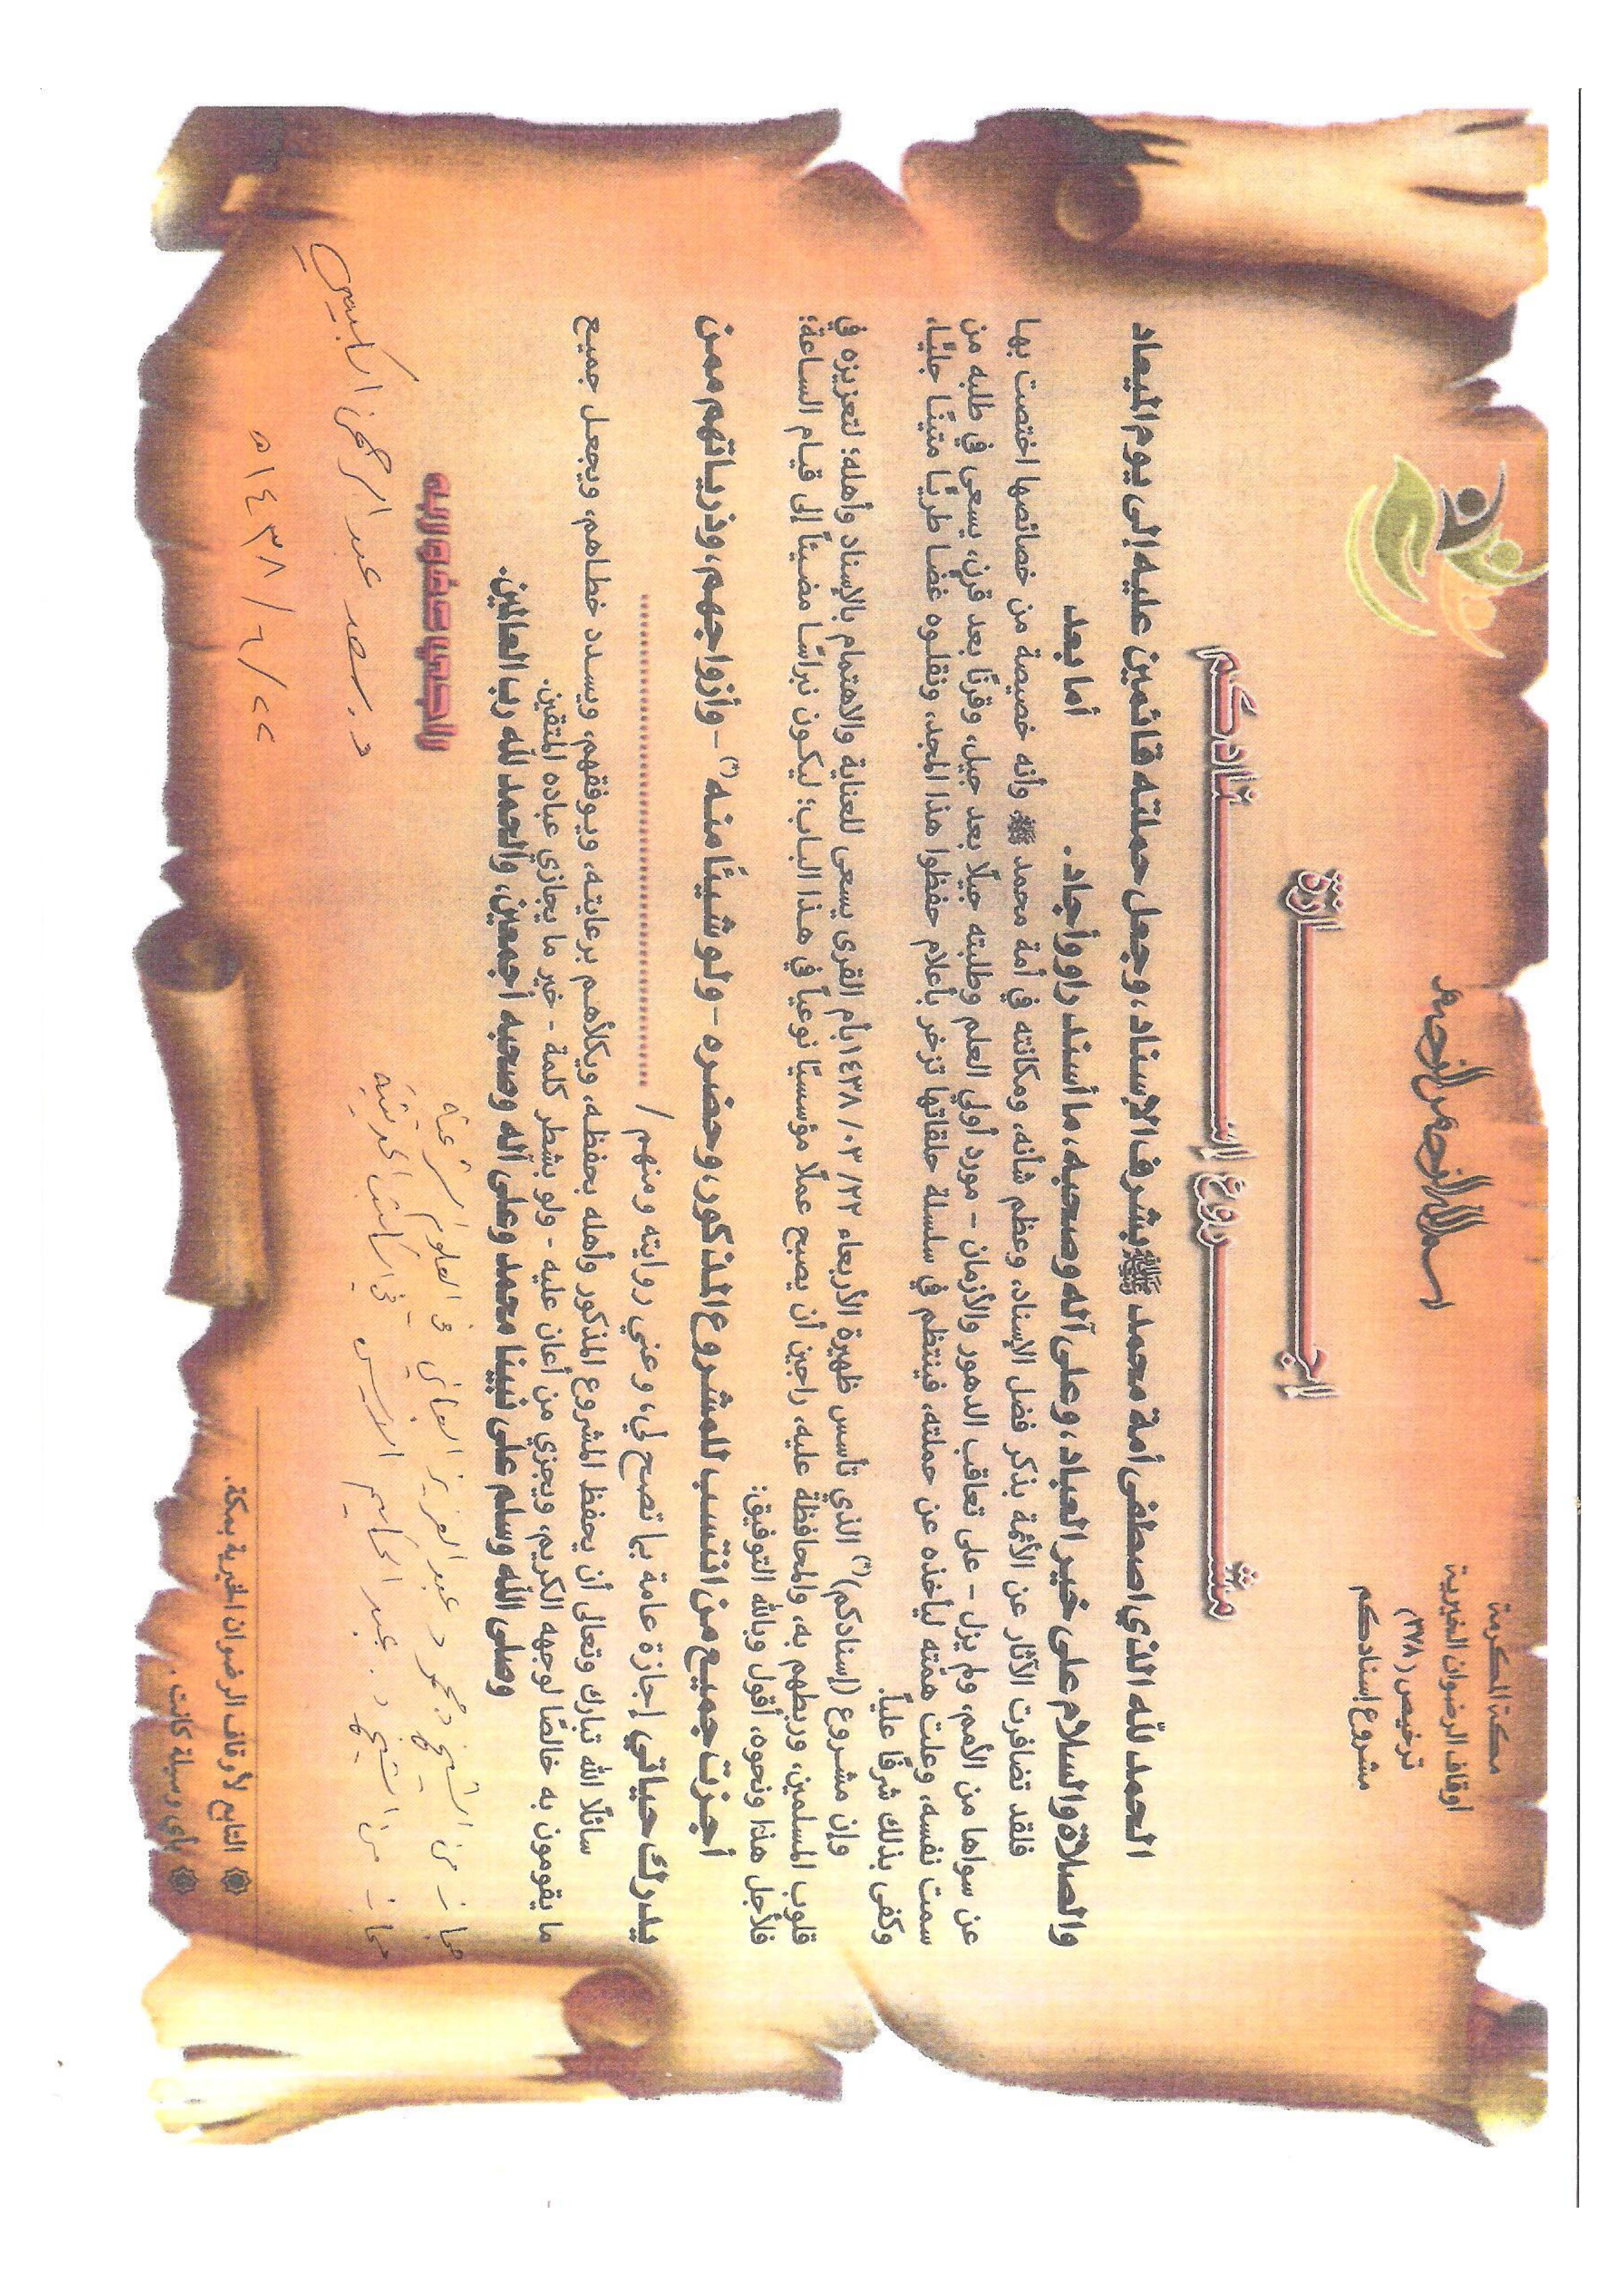 مكة المكرمة
أوقاف الرضوان الخيرية
ترخيص (٣٧٨)
مشروع إسنادكم
بسم الله الرحمن الرحيم
إجازة
مشروع إسنادكم
الحمد لله الذي اصطفى أمة محمد ﷺ بشرف الإسناد، وجعل حملته قائمين عليه إلى يوم الميعاد
والصلاة والسلام على خير العباد، وعلى آله وصحبه، ما أسند راو وأجاد. أما بعد
فلقد تضافرت الآثار عن الأئمة بذكر فضل الإسناد، وعظم شأنه، ومكانته في أمة محمد ﷺ وأنه خصيصة من خصائصها اختصت بها
عن سواها من الأمم، ولم يزل - على تعاقب الدهور والأزمان - مورد أولي العلم وطلبته جيلًا بعد جيل، وقرنًا بعد قرن، يسعى في طلبه من
سمت نفسه، وعلت همَّته ليأخذه عن حملته، فينتظم في سلسلة حلقاتها تزخر بأعلام حفظوا هذا المجد، ونقلوه غضا طريًّا متينًا جليًّا،
وكفى بذلك شرفًا عليًا.
وإن مشروع (إسنادكم)(*) الذي تأسس ظهيرة الأربعاء ٢٢/ ٠٣/ ١٤٣٨ بأم القرى يسعى للعناية والاهتمام بالإسناد وأهله؛ لتعزيزه في
قلوب المسلمين، وربطهم به، والمحافظة عليه، راجين أن يصبح عملًا مؤسسيًا نوعياً في هذا الباب؛ ليكون نبراسًا مضيئاً إلى قيام الساعة؛
فلأجل هذا ونحوه، أقول وبالله التوفيق:
أجزت جميع من انتسب للمشروع المذكور، وحضره - ولو شيئًا منه(*) - وأزواجهم، وذرياتهم ممن
يدرك حياتي إجازة عامة بما تصح لي، وعني روايته ومنهم / ........................
سائلًا الله تبارك وتعالى أن يحفظ المشروع المذكور وأهله بحفظه، ويكلأهم برعايته، ويوفقهم، ويسدد خطاهم، ويجعل جميع
ما يقومون به خالصًا لوجهه الكريم، ويجزي من أعان عليه - ولو بشطر كلمة - خير ما يجازي عباده المتقين.
وصلى الله وسلم على نبينا محمد وعلى آله وصحبه أجمعين، والحمد لله رب العالمين.
الراجي عفو ربه
مجاز من الشيخ د. محمود عبد العزيز العاني في العلوم الشرعية
مجاز من الشيخ د. عبد الحكيم الأنيس في الحديث
د. سعد عبد الرحمن
٢٢ / ٦ / ١٤٣٨ هـ
التابع لأوقاف الرضوان الخيرية بمكة.
بأي وسيلة كانت.